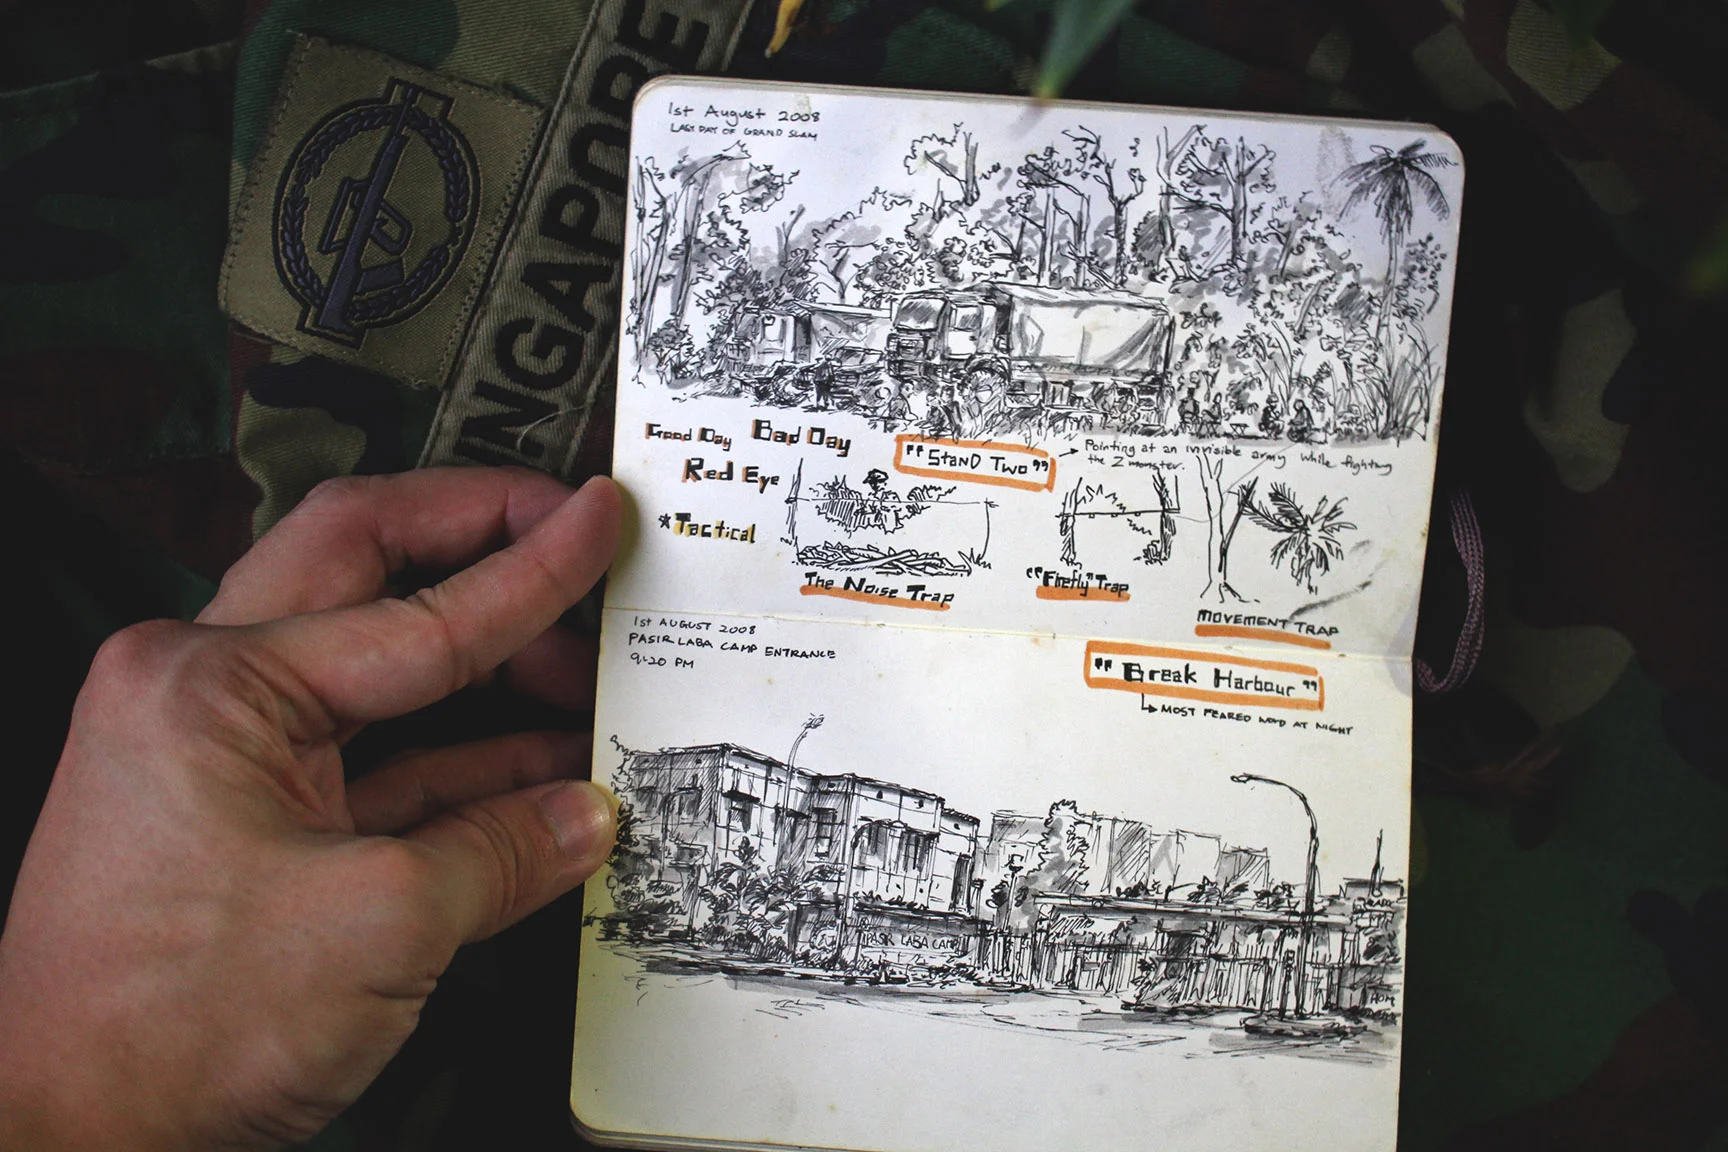 SINGAPORE
1st August 2008
LAST DAY OF GRAND SLAM
Good Day Bad Day
Red Eye
*Tactical
"Stand Two"
Pointing at an invisible army while fighting
the Z monster.
The Noise Trap
"Firefly" Trap
MOVEMENT TRAP
1st AUGUST 2008
PASIR LABA CAMP ENTRANCE
9:20 PM
"Break Harbour"
MOST FEARED WORD AT NIGHT
PASIR LABA CAMP